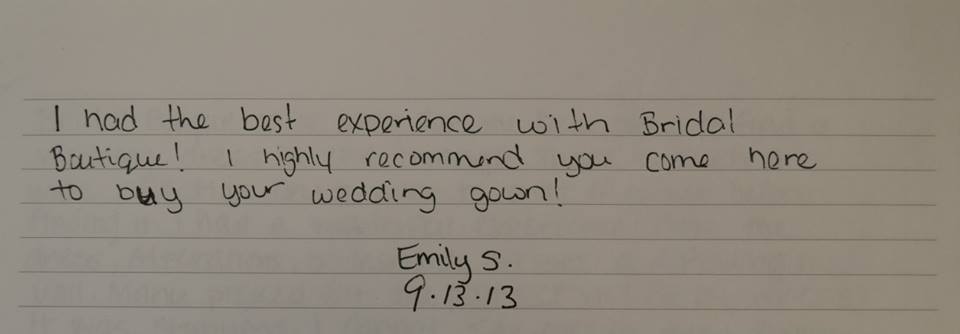 I had the best experience with Bridal
Boutique! I highly recommend you come here
to buy your wedding gown!
Emily S.
9.13.13